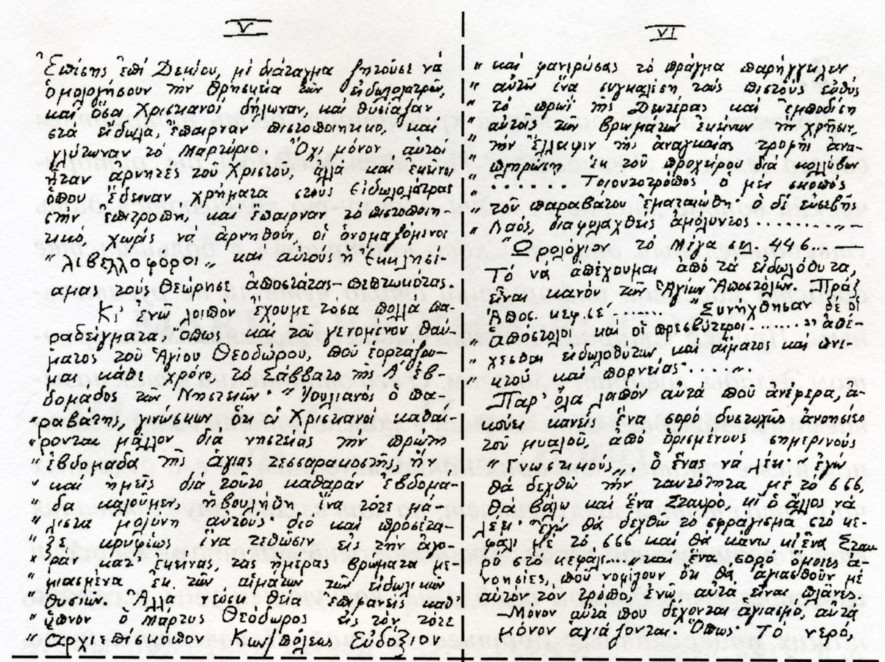 V
Ἐπίσης ἐπί Δεκίου, μέ διάταγμα ζητοῦσε νά
ὁμολογήσουν τήν θρησκεία τῶν εἰδωλολατρῶν,
καί ὅσοι Χριστιανοί δήλωναν, καί θυσίαζαν
στά εἴδωλα, ἔπαιρναν πιστοποιητικό, καί
γλύτωναν τό Μαρτύριο. Ὄχι μόνον αὐτοί
ἦταν ἀρνητές τοῦ Χριστοῦ, ἀλλά καί ἐκεῖνοι
ὅπου ἔδειναν χρήματα στούς Εἰδωλολάτρας
στήν ἐπιτροπή, καί ἔπαιρναν τό πιστοποιη-
τικό, χωρίς νά ἀρνηθοῦν, οἱ ὀνομαζόμενοι
" λιβελλοφόροι " καί αὐτούς ἡ Ἐκκλησί-
α μας τούς θεώρησε ἀποστάτας - πεπτωκότας.
Κι' ἐνῶ λοιπόν ἔχουμε τόσα πολλά πα-
ραδείγματα, ὅπως καί τοῦ γενομένου θαύ-
ματος τοῦ Ἁγίου Θεοδώρου, πού ἑορτάζου-
με κάθε χρόνο, τό Σάββατο τῆς Α' ἑβ-
δομάδος τῶν Νηστειῶν. " Ἰουλιανός ὁ πα-
" ραβάτης, γινώσκων ὅτι οἱ Χριστιανοί καθαί-
" ρονται μᾶλλον διά νηστείας τήν πρώτη
" ἑβδομάδα τῆς ἁγίας τεσσαρακοστῆς, ἥν,
" καί ἡμεῖς διά τοῦτο καθαράν ἑβδομά-
" δα καλοῦμεν, ἠβουλήθη ἵνα τότε μά-
" λιστα μολύνη αὐτούς· διό καί προσέτα-
" ξε κρυφίως ἵνα τεθῶσιν εἰς τήν ἀγο-
" ράν κατ' ἐκείνας, τάς ἡμέρας βρώματα με-
" μιασμένα ἐκ τῶν αἱμάτων τῶν εἰδωλικῶν
" θυσιῶν. Ἀλλά νεύσει θεία ἐπιφανείς καθ'
" ὕπνον ὁ Μάρτυς Θεόδωρος εἰς τόν τότε
" ἀρχιεπίσκοπον Κων/πόλεως Εὐδόξιον
VI
" καί φανερώσας τό πρᾶγμα παρήγγειλεν
" αὐτῶ ἵνα συγκαλέση τούς πιστούς εὐθύς
" τό πρωί τῆς Δευτέρας καί ἐμποδίση
" αὐτοῖς τῶν βρωμάτων ἐκείνων τήν χρῆσιν,
" τήν ἔλλειψιν τῆς ἀναγκαίας τροφῆς ἀνα-
" πληρώση ἐκ τοῦ προχείρου διά κολλύβων
" ....... Τοιουτοτρόπως ὁ μέν σκοπός
" τοῦ παραβάτου ἐματαιώθη· ὁ δέ εὐσεβής
" Λαός, διαφυλαχθείς ἀμόλυντος ........"
" Ὡρολόγιον τό Μέγα σελ. 446.. —
Τό νά ἀπέχουμε ἀπό τά εἰδωλόθυτα,
εἶναι κανόν τῶν Ἁγίων Ἀποστόλων. Πράξ
Ἀποσ. κεφ. ιε' ....... " Συνήχθησαν δέ οἱ
" ἀπόστολοι καί οἱ πρεσβύτεροι ........" ἀπέ-
" χεσθαι εἰδωλοθύτων, καί αἵματος καί πνι-
" κτοῦ καί πορνείας ......."
Παρ' ὅλα λοιπόν αὐτά πού ἀνέφερα, ἀ-
κούει κανείς ἕνα σορό δυστυχῶς ἀνοησίες
τοῦ μυαλοῦ, ἀπό ὁρισμένους σημερινούς
" Γνωστικούς ". ὁ ἕνας νά λέει· " ἐγώ
θά δεχθῶ τήν ταυτότητα μέ τό 666,
θά βάλω καί ἕνα Σταυρό, κι' ὁ ἄλλος νά
λέει " ἐγώ θά δεχθῶ τό σφράγισμα στό κε-
φάλι μέ τό 666 καί θά κάνω κι' ἕνα Σταυ
ρό στό κεφάλι..." καί ἕνα σορό ὅμοιες ἀ-
νοησίες, πού νομίζουν ὅτι θά ἁγιασθοῦν μέ
αὐτόν τόν τρόπο, ἐνῶ αὐτά εἶναι πλάνες.
— Μόνον αὐτά πού δέχονται ἁγιασμό, αὐτά
μόνον ἁγιάζονται. Ὅπως· Τό νερό,